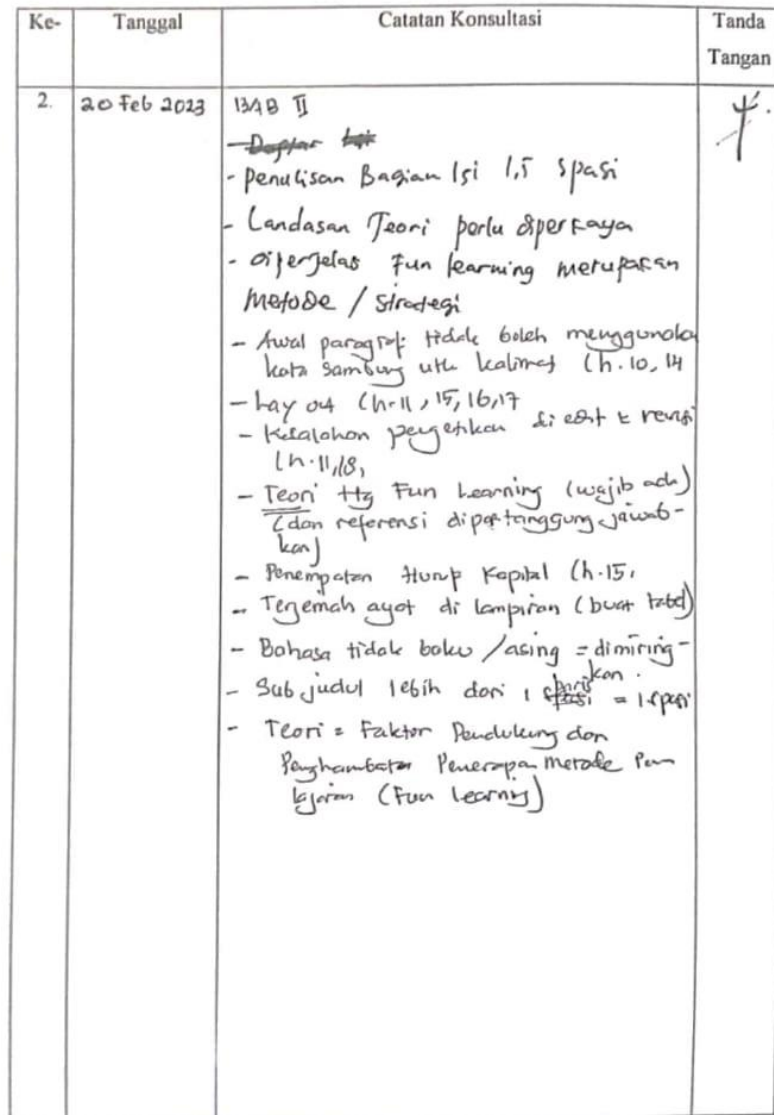 Ke- Tanggal Catatan Konsultasi Tanda Tangan
2. 20 Feb 2023 BAB II
- Daftar
- Penulisan Bagian Isi 1,5 Spasi
- Landasan Teori perlu diperkaya
- Diperjelas Fun learning merupakan
Metode / Strategi
- Awal paragraf tidak boleh menggunaka
kata sambung utk kalimat (h.10, 14
- Lay out (h.11, 15, 16, 17
- Kesalahan pengetikan di edit & revisi
(h.11, 18,
- Teori ttg Fun Learning (wajib ada)
(dan referensi dipertanggung jawab-
kan)
- Penempatan Huruf Kapital (h.15,
- Terjemah ayat di lampiran (buat tabel)
- Bahasa tidak baku / asing = dimiring-
kan.
- Sub judul lebih dari 1 baris = 1 spasi
- Teori = Faktor Pendukung dan
Penghambatan Penerapan Metode Pem
lajaran (Fun Learning)